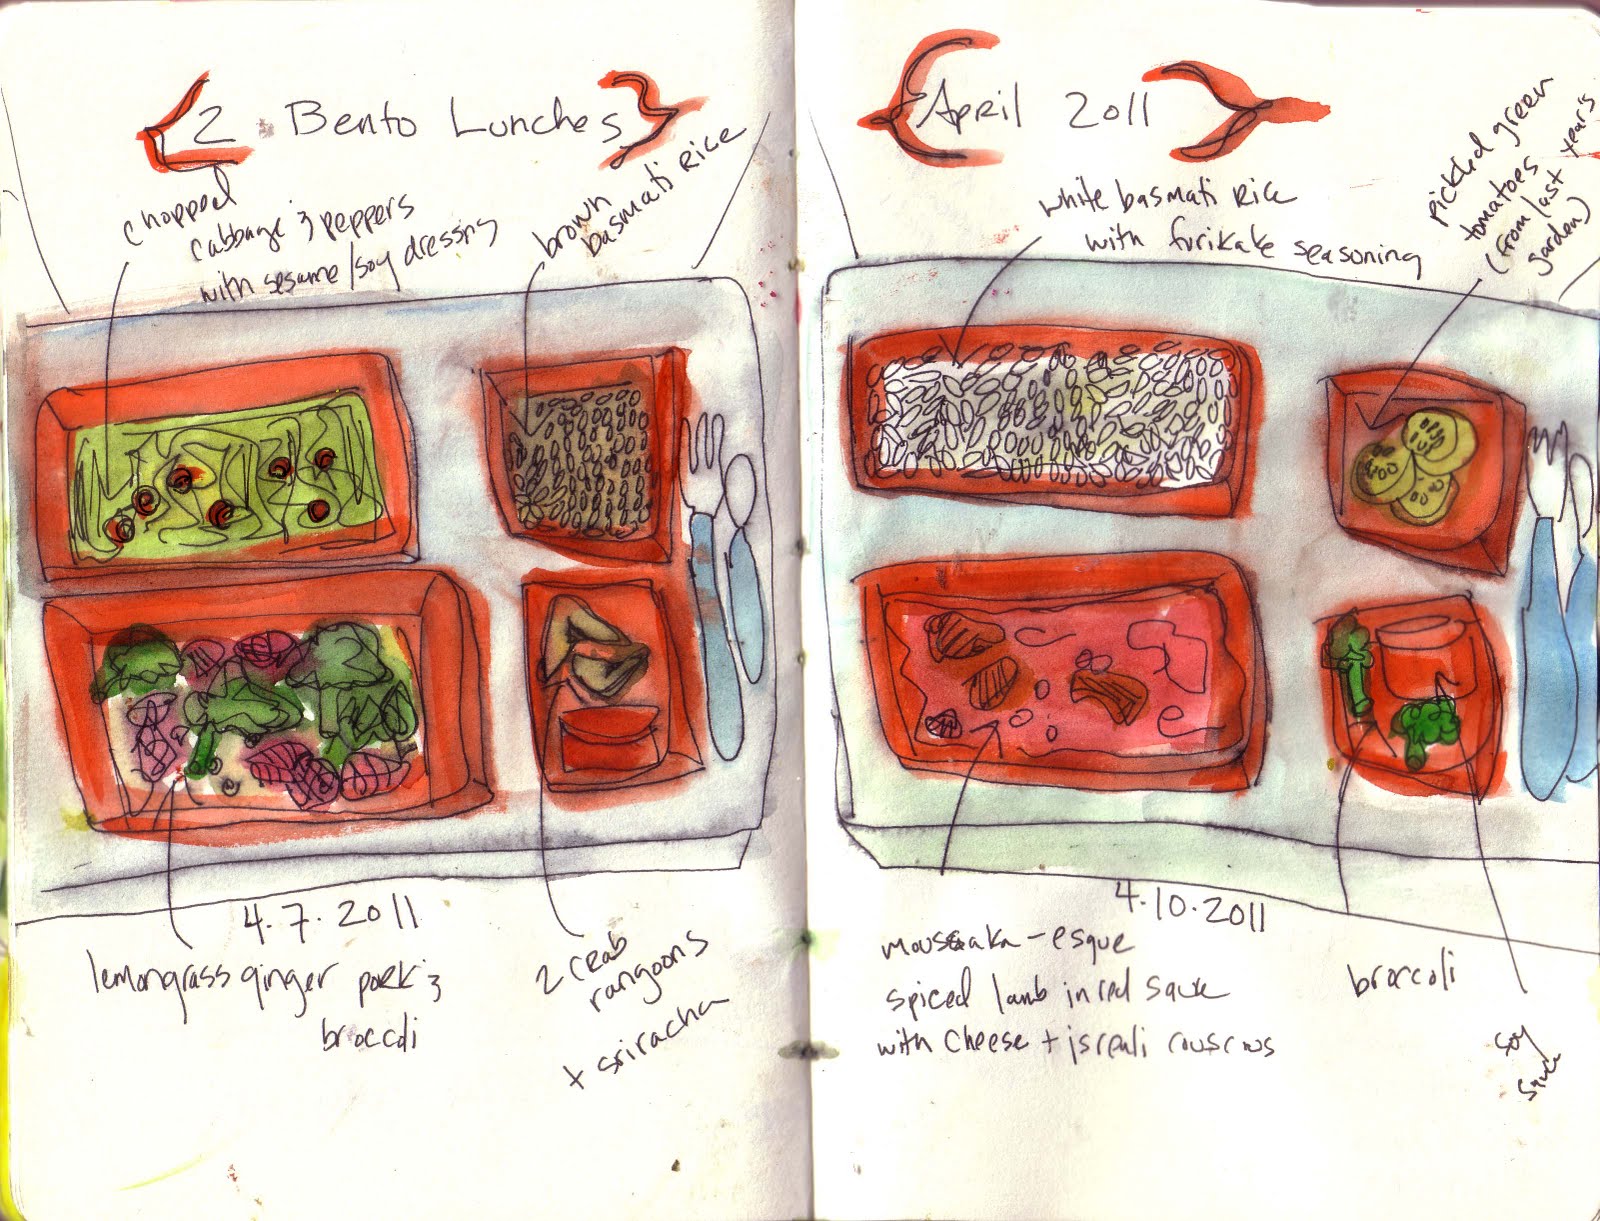 2 Bento Lunches
chopped
cabbage & peppers
with sesame/soy dressing
brown
basmati rice
4.7.2011
lemongrass ginger pork &
broccoli
2 crab
rangoons
+ sriracha
April 2011
white basmati rice
with furikake seasoning
pickled green
tomatoes
(from last year's
garden)
4.10.2011
moussaka-esque
spiced lamb in red sauce
with cheese + isreali couscous
broccoli
soy
sauce